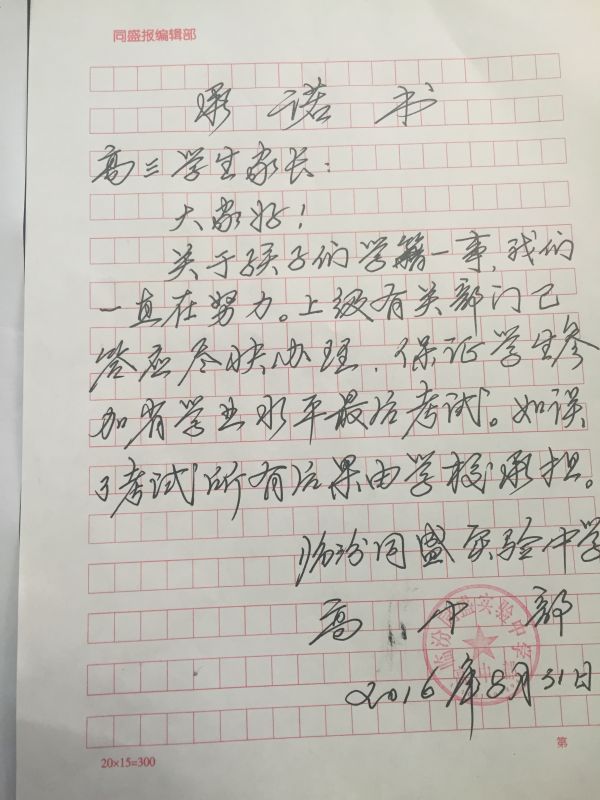 同盛报编辑部
承诺书
高三学生家长：
大家好！
关于孩子们学籍一事，我们
一直在努力。上级有关部门已
答应尽快办理，保证学生参
加省学业水平最后考试。如误
了考试所有后果由学校承担。
临汾同盛实验中学
高中部
临汾同盛实验中学
2016年8月31日
第
20×15=300